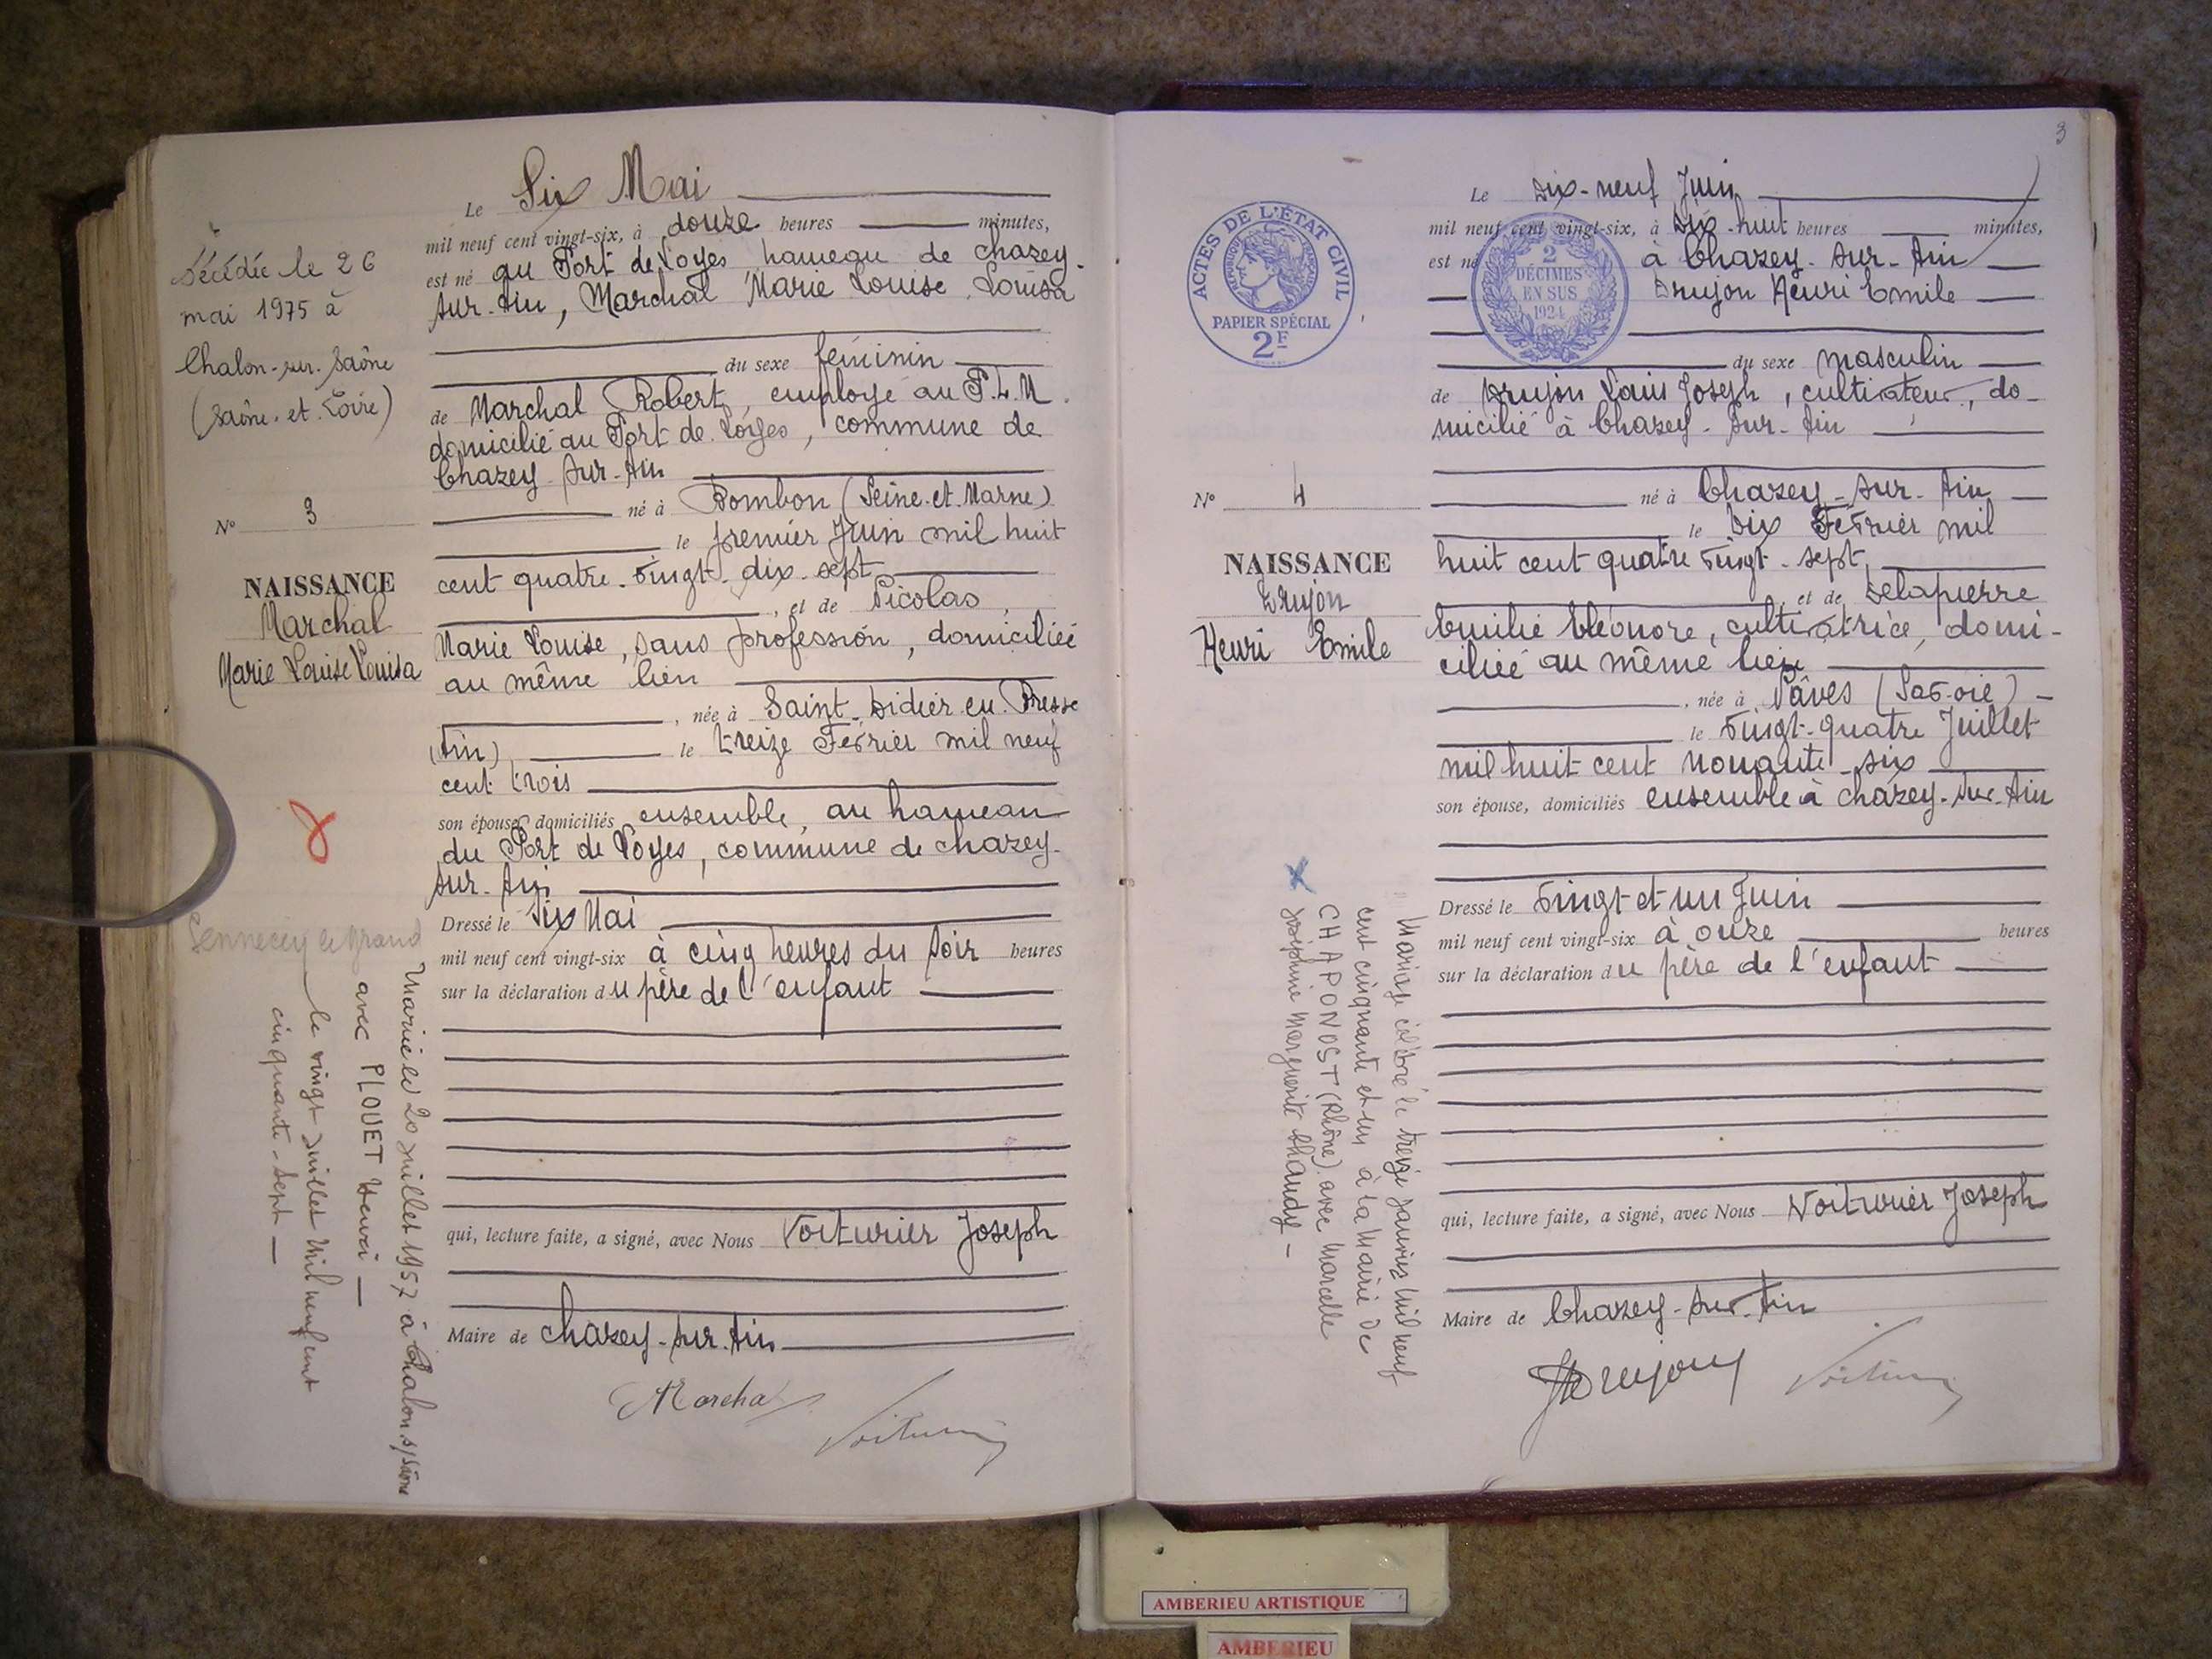 Le Six Mai
mil neuf cent vingt-six, à douze heures minutes,
est né au Port de Loyes hameau de Chazey-
sur-Ain, Marchal Marie Louise Louisa
du sexe féminin
de Marchal Robert, employé au P.L.M.
domicilié au Port de Loyes, commune de
Chazey-sur-Ain
né à Bombon (Seine-et-Marne)
le premier Juin mil huit
cent quatre-vingt-dix-sept
, et de Picolas,
Marie Louise, sans profession, domiciliée
au même lieu
, née à Saint-Didier en Bresse
(Ain) le treize Février mil neuf
cent trois
son épouse, domiciliés ensemble, au hameau
du Port de Loyes, commune de Chazey-
sur-Ain
Dressé le Six Mai
mil neuf cent vingt-six à cinq heures du soir heures
sur la déclaration du père de l'enfant
qui, lecture faite, a signé, avec Nous Voiturier Joseph
Maire de Chazey-sur-Ain
Marchal
Voiturier
Décédée le 26
mai 1975 à
Chalon-sur-Saône
(Saône-et-Loire)
N° 3
NAISSANCE
Marchal
Marie Louise Louisa
Sennecey le Grand
Mariée le 20 juillet 1957 à Chalon s/Saône
avec PLOUET Henri —
le vingt juillet mil neuf cent
cinquante-sept —
3
ACTES DE L'ÉTAT CIVIL
PAPIER SPÉCIAL
2F
2
DÉCIMES
EN SUS
1924
Le Dix-neuf Juin
mil neuf cent vingt-six, à Dix-huit heures minutes,
est né à Chazey-sur-Ain
Drujon Henri Emile
du sexe masculin
de Drujon Louis Joseph, cultivateur, do-
micilié à Chazey-sur-Ain
né à Chazey-sur-Ain
le Dix Février mil
huit cent quatre vingt-sept
, et de Delapierre
Emilie Eléonore, cultivatrice, domi-
ciliée au même lieu
, née à Pâves (Savoie)
le vingt-quatre Juillet
mil huit cent nonante-six
son épouse, domiciliés ensemble à Chazey-sur-Ain
Dressé le vingt et un Juin
mil neuf cent vingt-six à onze heures
sur la déclaration du père de l'enfant
qui, lecture faite, a signé, avec Nous Voiturier Joseph
Maire de Chazey-sur-Ain
Drujon
Voiturier
N° 4
NAISSANCE
Drujon
Henri Emile
Mariage célébré le treize janvier mil neuf
cent cinquante et un à la Mairie de
CHAPONOST (Rhône) avec Marcelle
Joséphine Marguerite Chaudy —
AMBERIEU ARTISTIQUE
AMBERIEU